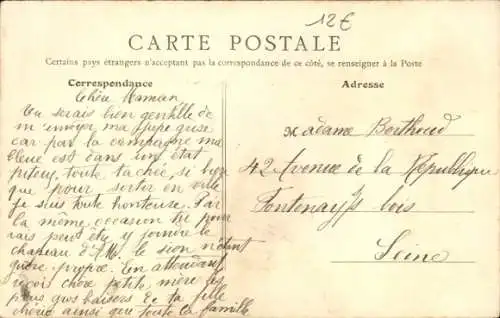 12€
CARTE POSTALE
Certains pays étrangers n'acceptant pas la correspondance de ce côté, se renseigner à la Poste
Correspondance
Chère Maman
Tu serais bien gentille de
m'envoyer ma jupe grise
car par la campagne ma
bleue est dans un état
piteux, toute tachée, si bien
que pour sortir en ville
je suis toute honteuse. Par
la même occasion tu pour
rais peut être y joindre le
chapeau d' le sien n'étant
guère propre. En attendant
reçois chère petite mère les
plus gros baisers de ta fille
chérie ainsi que toute la famille
Adresse
Madame Berthoud
42 Avenue de la République
Fontenay s/s bois
Seine